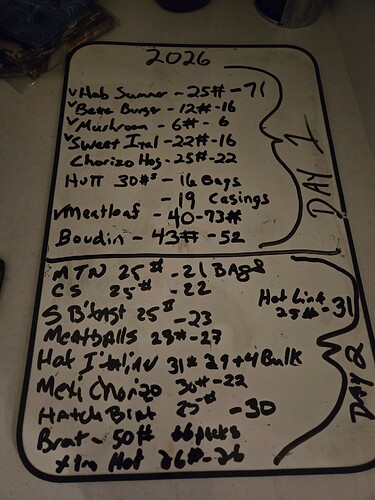 2026
✓Hab Summer - 25# - 71
✓Bacon Burger - 12# - 16
✓Mushroom - 6# - 6
✓Sweet Ital - 22# - 16
Chorizo Hog - 25# - 22
Hutt 30#s - 16 Bags
- 19 Casings
✓Meatloaf - 40 - 73#
Boudin - 43# - 52
DAY 1
MTN 25# - 21 BAgs
CS 25# - 22
Hot Link 25# - 31
S B'fast 25# - 23
Meatballs 28# - 27
Hot 31# 29 + 4 Bulk
Mexi Chorizo 30# - 22
HAtch Brat 25# - 30
Brat - 50# 66 picks
xtra Hot 26# - 26
DAY 2